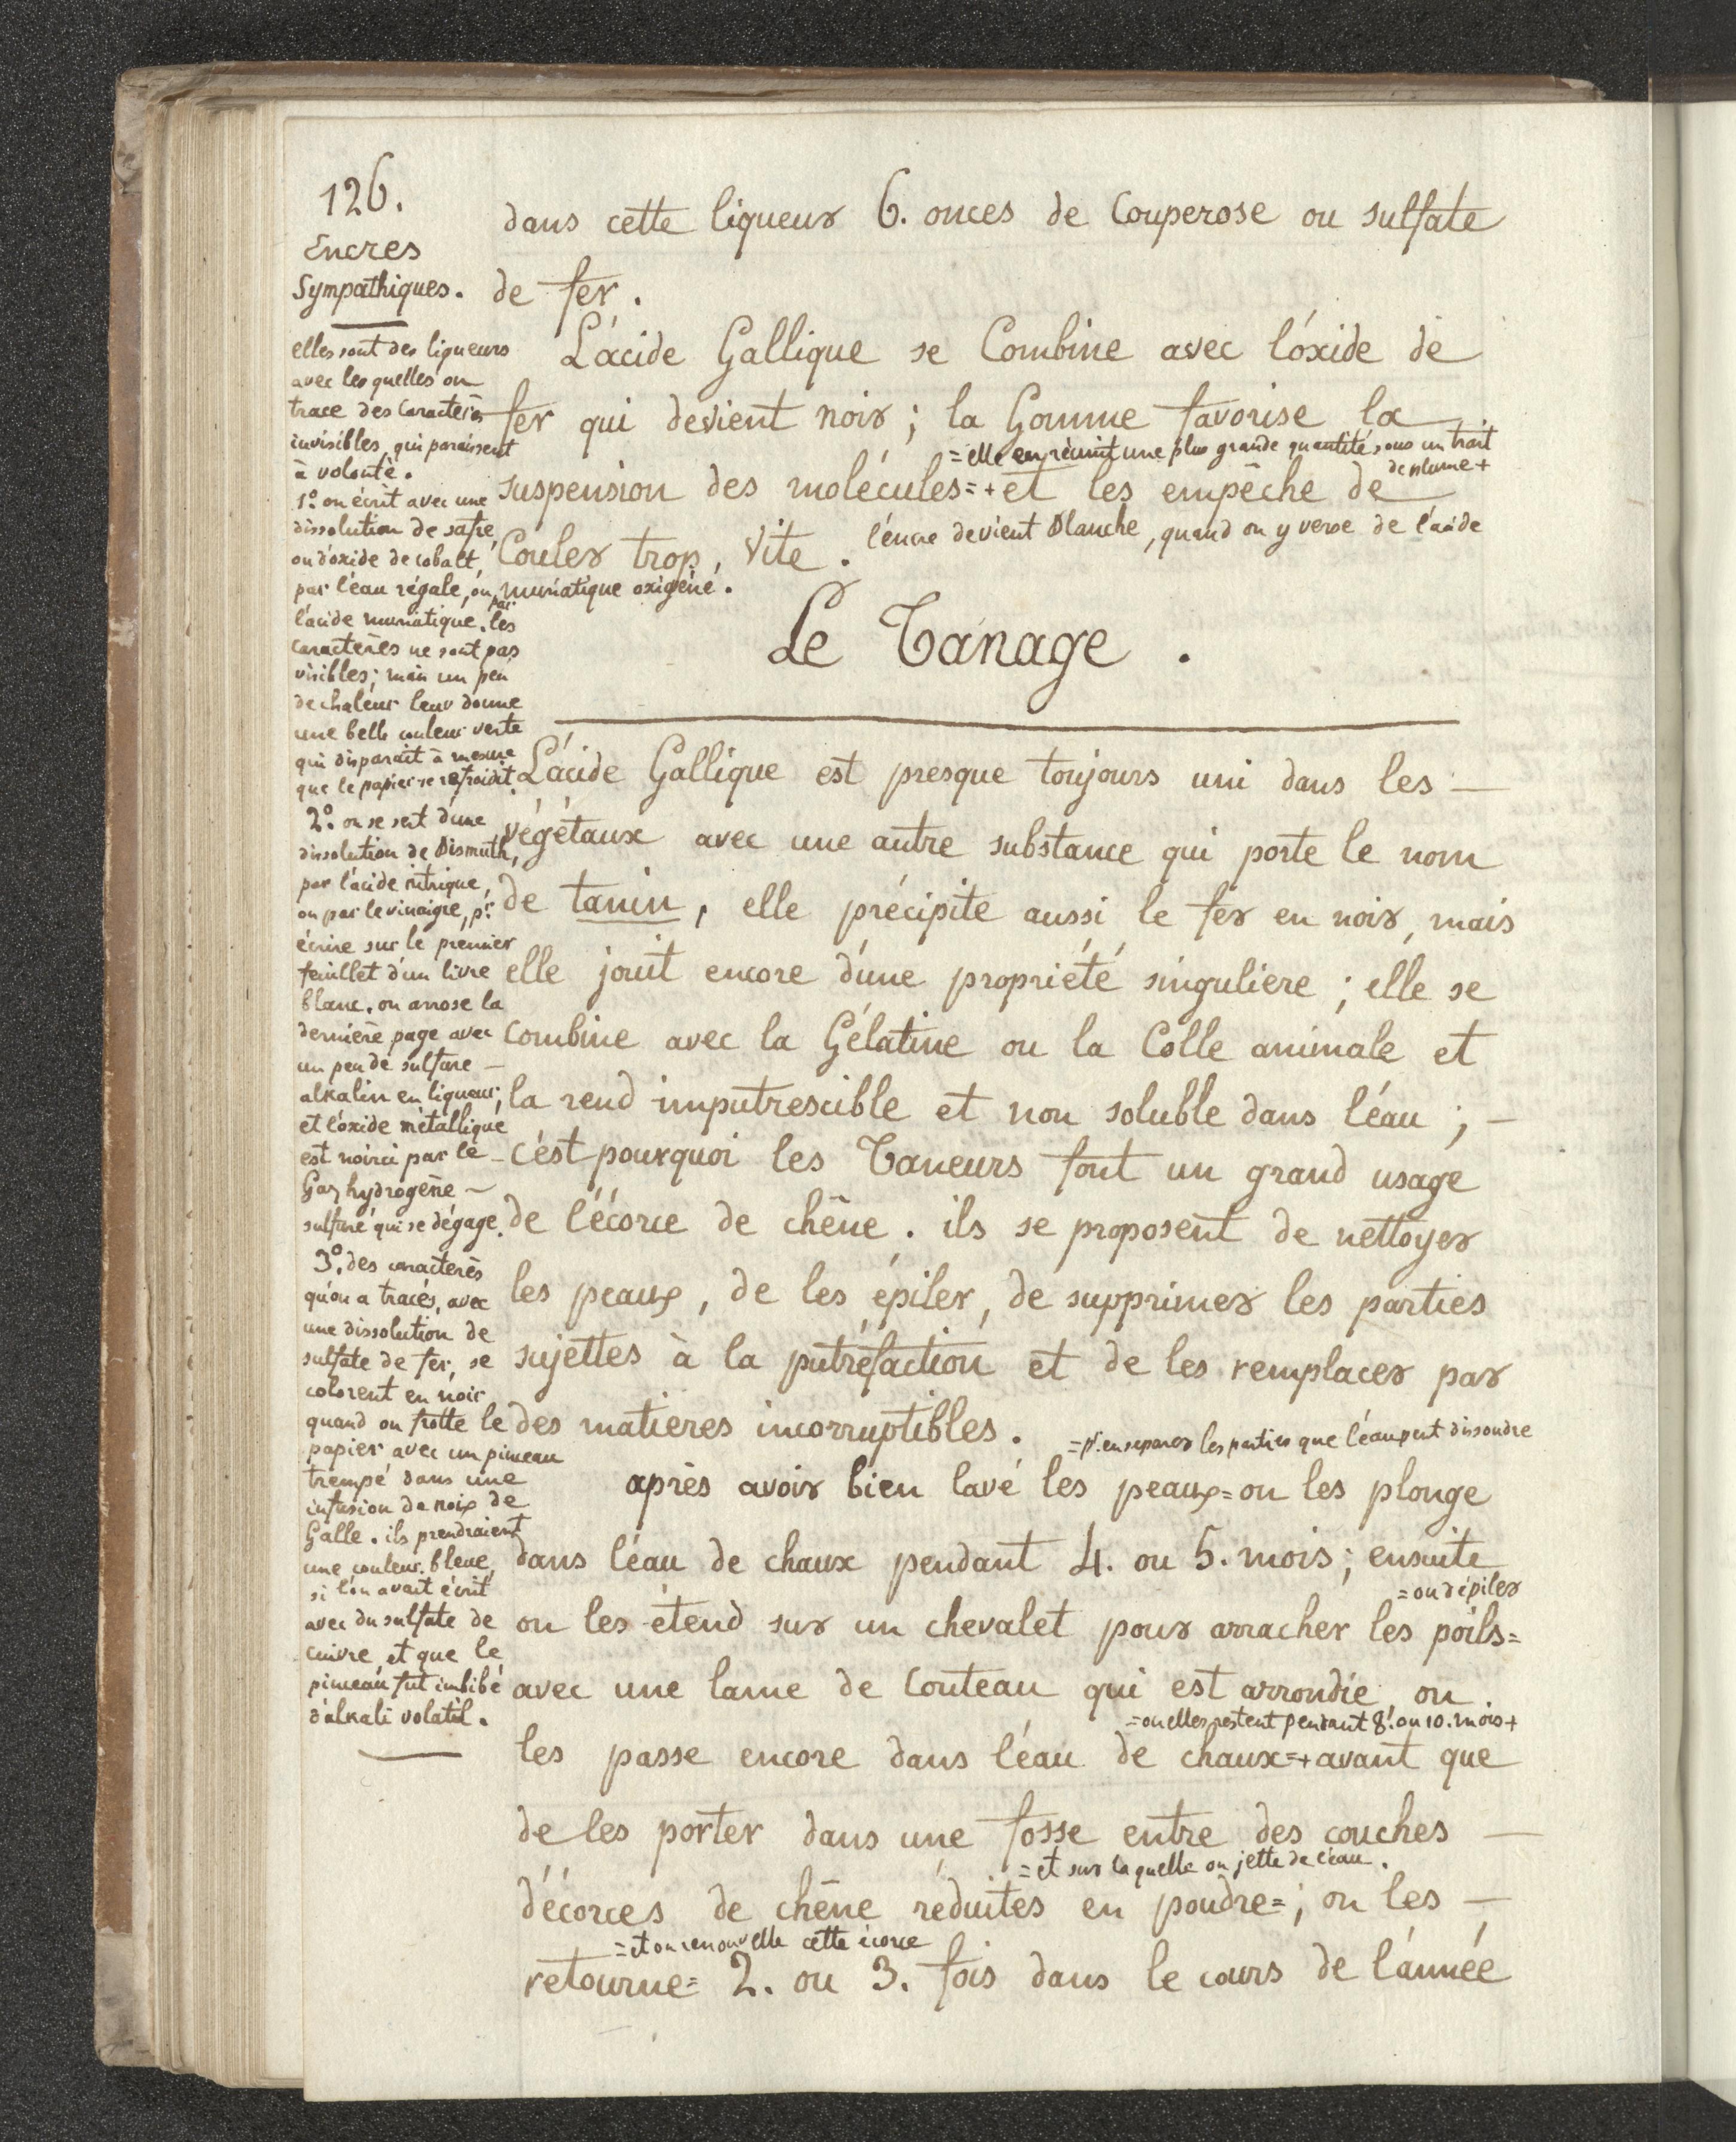 126.
Encres
Sympathiques.
elles sont des liqueurs
avec lesquelles on
trace des caracteres
invisibles, qui paraissent
à volonté.
1º. on écrit avec une
dissolution de safre,
ou d'oxide de cobalt,
par l'eau régale, ou par
l'acide muriatique. les
caractères ne sont pas
visibles; mais un peu
de chaleur leur donne
une belle couleur verte
qui disparait à mesure
que le papier se refroidit.
2º. on se sert d'une
dissolution de Bismuth,
par l'acide nitrique,
ou par le vinaigre, pr.
écrire sur le premier
feuillet d'un livre
blanc. on arrose la
dernière page avec
un peu de sulfure —
alkalin en liqueur;
et l'oxide métallique
est noirci par le
Gaz hydrogène —
sulfuré qui se dégage.
3º. des caracteres
qu'on a tracés, avec
une dissolution de
sulfate de fer, se
colorent en noir
quand on frotte le
papier avec un pinceau
trempé dans une
infusion de noix de
Galle. ils prendraient
une couleur bleue,
si l'on avait écrit
avec du sulfate de
cuivre, et que le
pinceau fut imbibé
d'alkali volatil.
dans cette liqueur 6. onces de Couperose ou sulfate
de fer.
L'acide Gallique se Combine avec l'oxide de
fer qui devient noir; la Gomme favorise la
= elle en réunit une plus grande quantité sous un trait
de plume +
suspension des molécules = + et les empêche de
Couler trop, vite. l'encre devient blanche, quand on y verse de l'acide
muriatique oxigéné.
Le Tanage.
L'acide Gallique est presque toujours uni dans les —
végétaux avec une autre substance qui porte le nom
de tanin, elle précipite aussi le fer en noir, mais
elle jouit encore d'une propriété singuliere; elle se
combine avec la Gélatine ou la Colle animale et
la rend imputrescible et non soluble dans l'eau; —
c'est pourquoi les Taneurs font un grand usage
de l'écorce de chêne. ils se proposent de nettoyer
les peaux, de les épiler, de supprimer les parties
sujettes à la putréfaction et de les remplacer par
des matieres incorruptibles.
= pr. en separer les parties que l'eau peut dissoudre
après avoir bien lavé les peaux = on les plonge
dans l'eau de chaux pendant 4. ou 5. mois; ensuite
= ou dépiler
on les étend sur un chevalet pour arracher les poils =
avec une lame de Couteau qui est arrondie, on
= ou elles restent pendant 8. ou 10. mois +
les passe encore dans l'eau de chaux = + avant que
de les porter dans une fosse entre des couches —
= et sur laquelle on jette de l'eau.
d'écorces de chêne réduites en poudre =; on les —
= et on renouvelle cette écorce
retourne = 2. ou 3. fois dans le cours de l'année